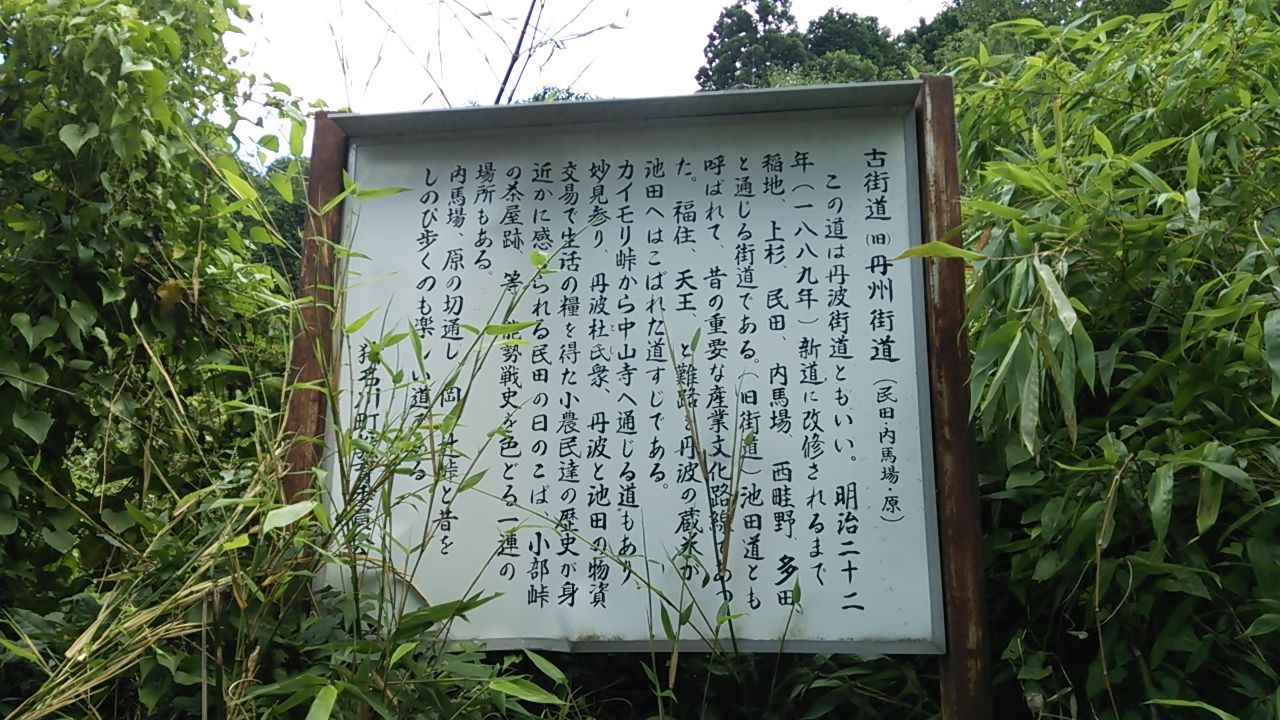 古街道(旧)丹州街道(民田・内馬場・原)
この道は丹波街道ともいい。明治二十二
年(一八八九年)新道に改修されるまで
稲地、上杉、民田、内馬場、西畦野、多田
と通じる街道である。(旧街道)池田道とも
呼ばれて、昔の重要な産業文化路線であっ
た。福住、天王、と難路、丹波の蔵米が
池田へはこばれた道すじである。
カイモリ峠から中山寺へ通じる道もあり
妙見参り、丹波杜氏衆、丹波と池田の物資
交易で生活の糧を得た小農民達の歴史が身
近かに感られる民田の日のこば、小部峠
の茶屋跡、等能勢戦史を色どる一連の
場所もある。
内馬場、原の切通し、岡 峠と昔を
しのび歩くのも楽しい道である
猪名川町教育委員会